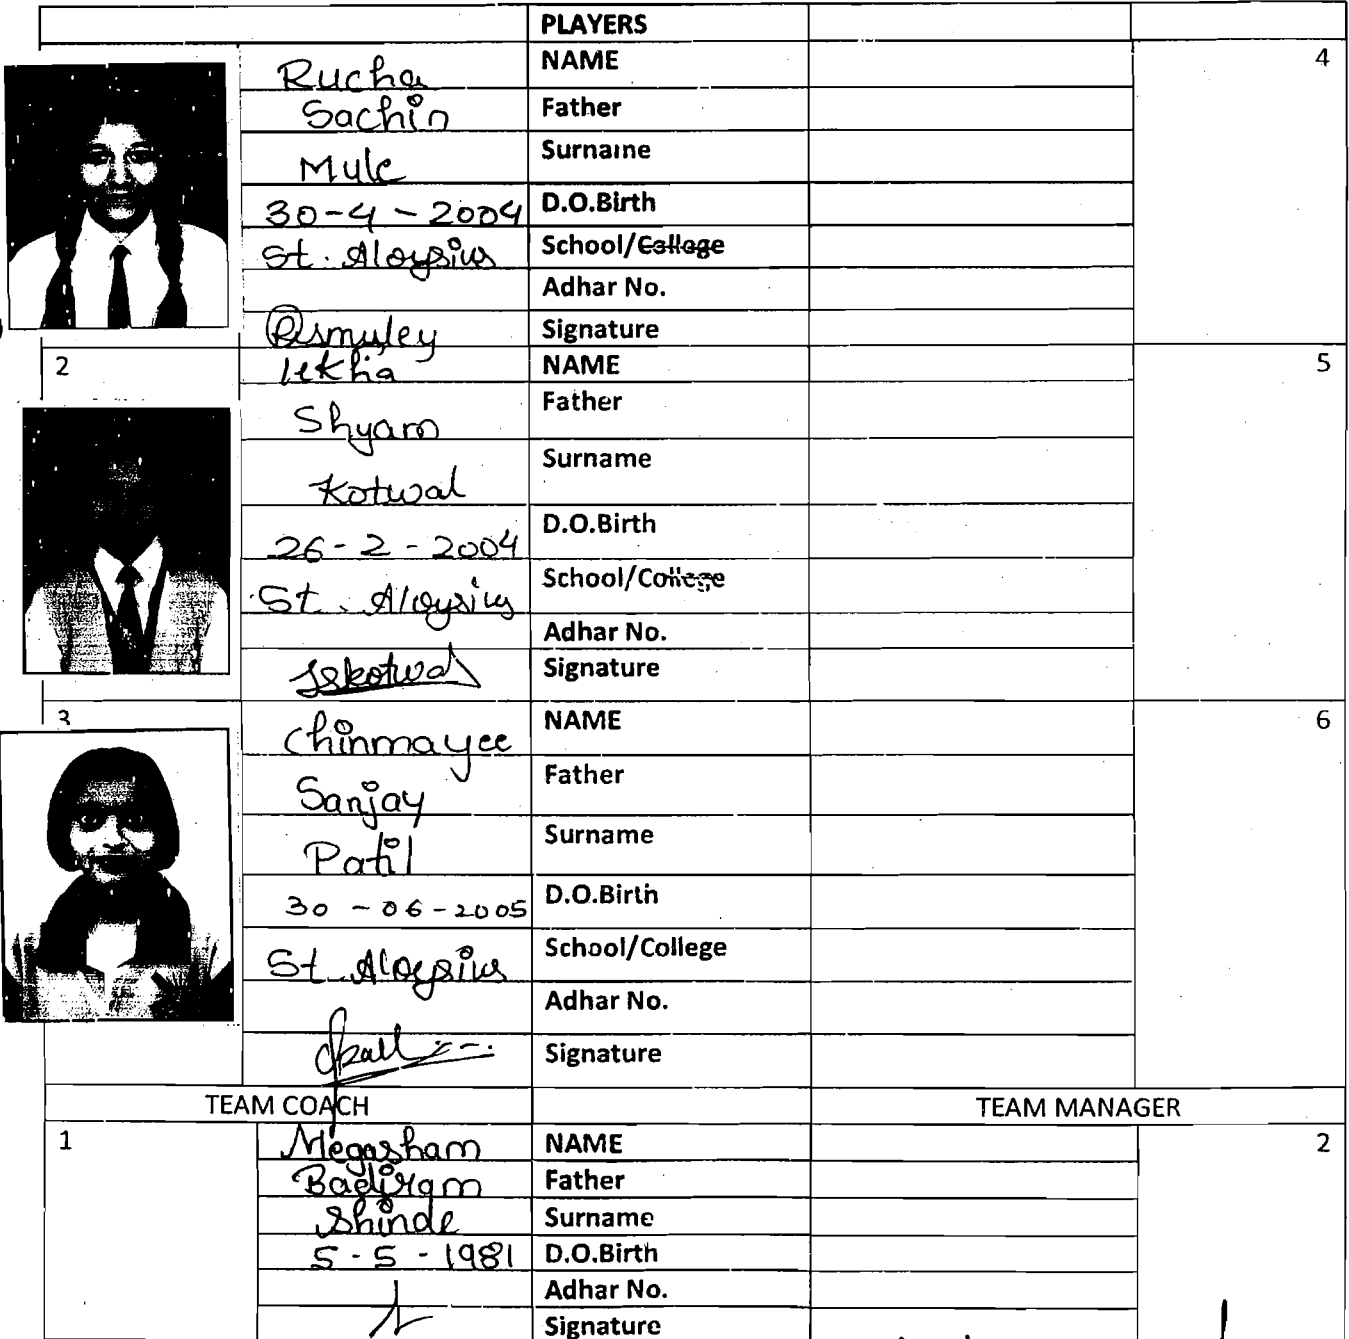 PLAYERS
Rucha NAME 4
Sachin Father
Mule Surname
30-4-2004 D.O.Birth
St. Aloysius School/College
Adhar No.
Rsmuley Signature
2 NAME 5
Shyam Father
Kotwal Surname
26-2-2004 D.O.Birth
St. Aloysius School/College
Adhar No.
Signature
3 Chinmayee NAME 6
Sanjay Father
Patil Surname
30-06-2005 D.O.Birth
St. Aloysius School/College
Adhar No.
Signature
TEAM COACH TEAM MANAGER
1 Megasham NAME 2
Father
Shinde Surname
5-5-1981 D.O.Birth
Adhar No.
Signature